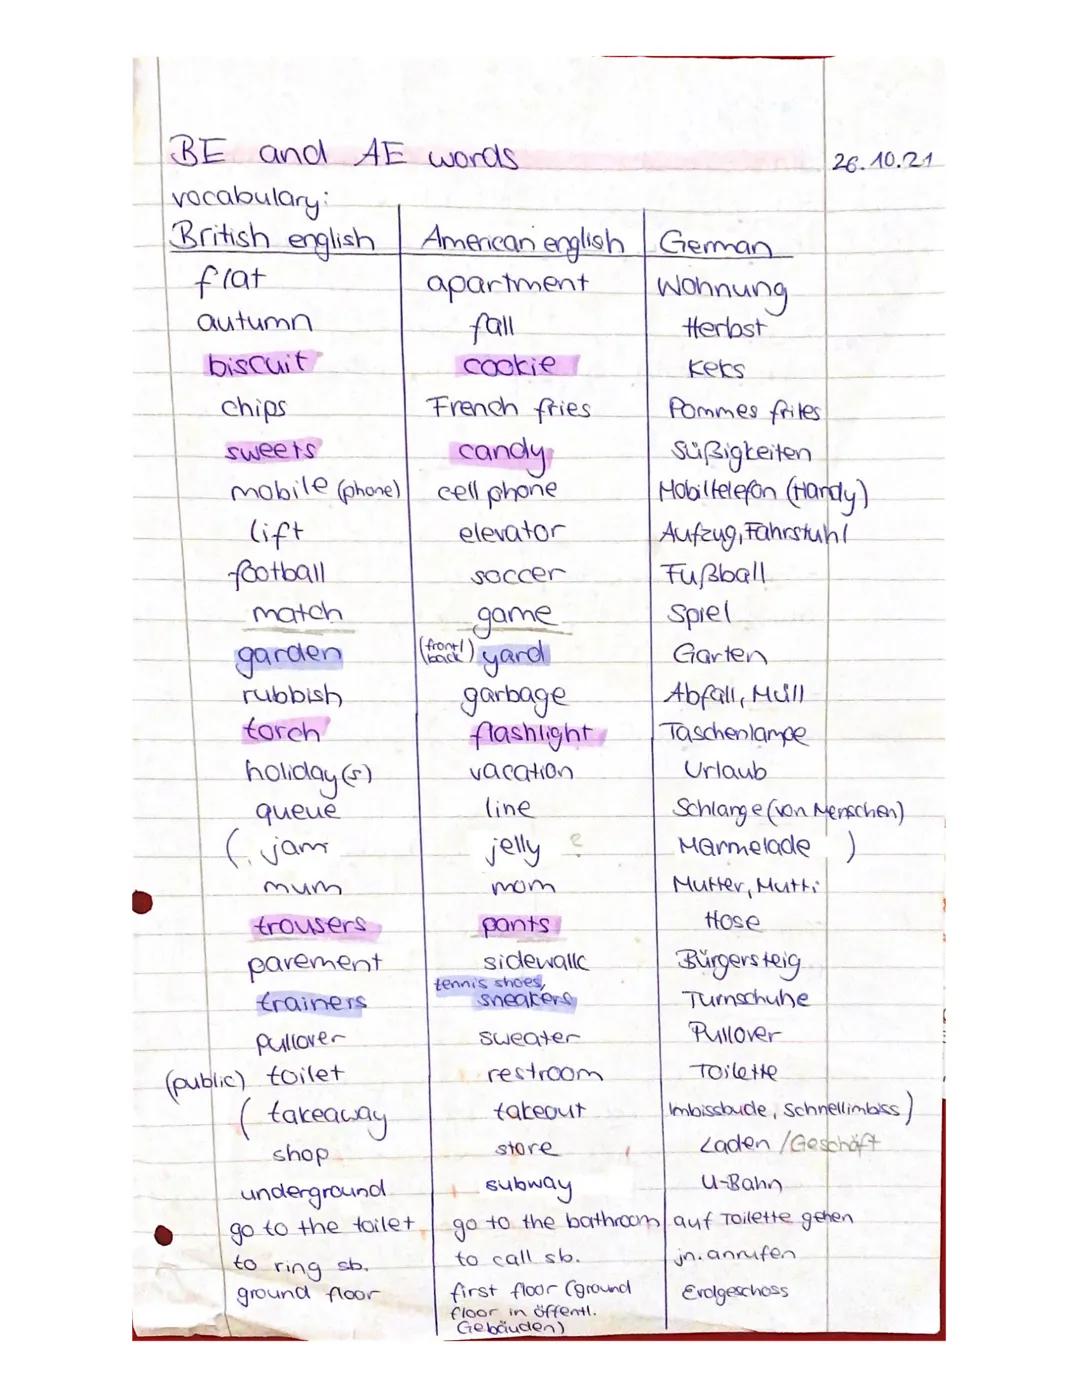 BE and AE words 26.10.21
vocabulary:
British english American english German
flat apartment Wohnung
autumn fall Herbst
biscuit cookie Keks
chips French fries Pommes frites
sweets candy Süßigkeiten
mobile (phone) cell phone Mobiltelefon (Handy)
lift elevator Aufzug, Fahrstuhl
football soccer Fußball
match game Spiel
garden (front/back) yard Garten
rubbish garbage Abfall, Müll
torch flashlight Taschenlampe
holiday(s) vacation Urlaub
queue line Schlange (von Menschen)
(. jam jelly ? Marmelade )
mum mom Mutter, Mutti
trousers pants Hose
pavement sidewalk Bürgersteig
trainers tennis shoes, sneakers Turnschuhe
pullover sweater Pullover
(public) toilet restroom Toilette
( takeaway takeout Imbissbude, Schnellimbiss )
shop store Laden / Geschäft
underground subway U-Bahn
go to the toilet go to the bathroom auf Toilette gehen
to ring sb. to call sb. jn. anrufen
ground floor first floor (ground Erdgeschoss
floor in öffentl.
Gebäuden)